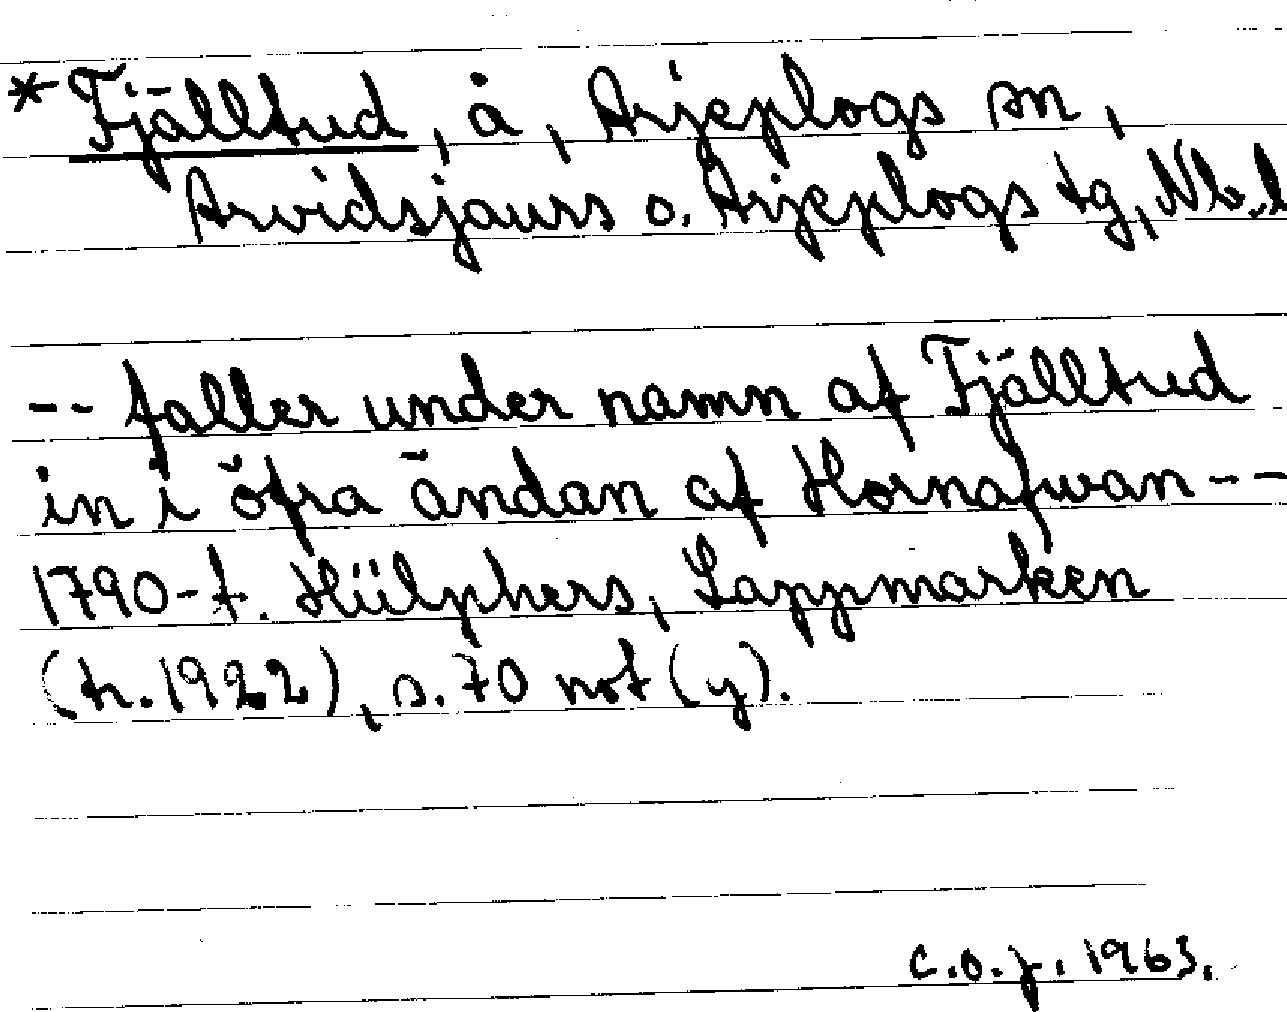 * Fjälltud, å, Arjeplogs sn,
Arvidsjaurs o. Arjeplogs tg, Nb.l
-- faller under namn af Fjälltud
in i öfra ändan af Hornafwan --
1790-t. Hülphers, Lappmarken
(tr. 1922), s. 70 not (y).
C.O.J. 1963.